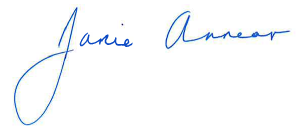 Janie Annear